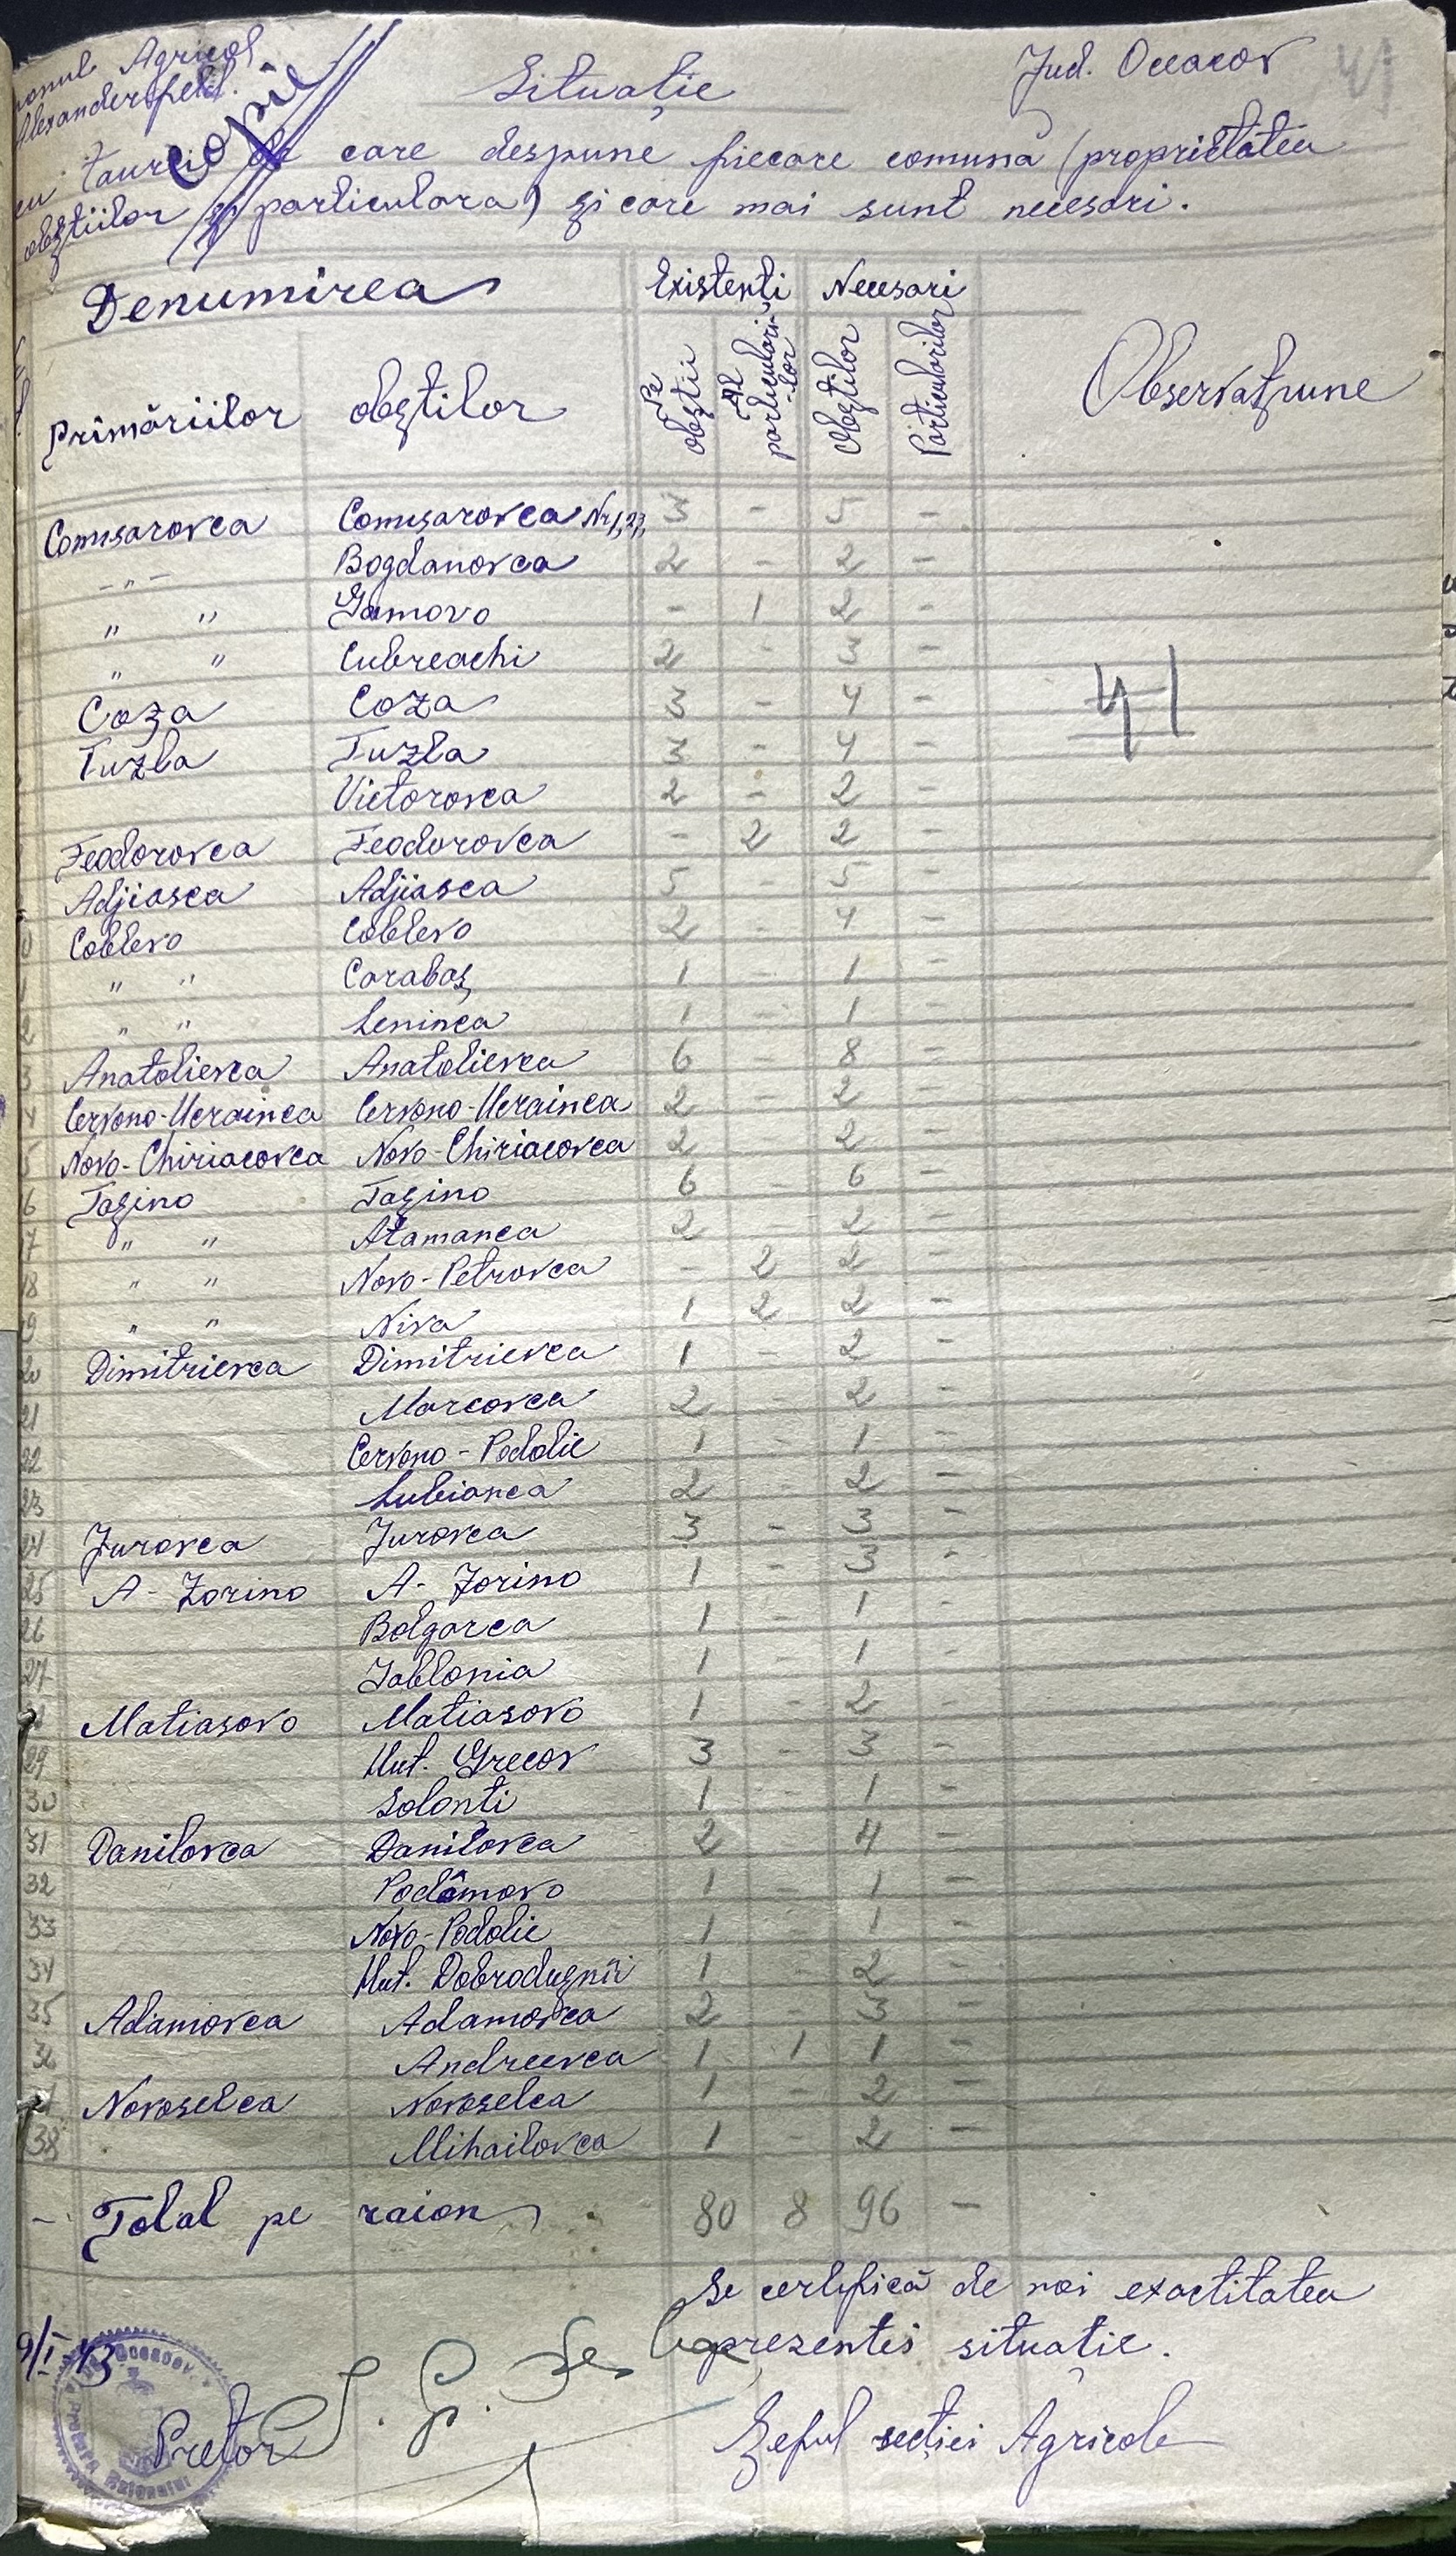 Agricol
Alexanderfeld.
Copie
Situație
Jud. Oceacov
41
cu taurii de care despune fiecare comună (proprietatea
obștiilor și particulara) și care mai sunt necesari.
Denumirea
Existenti
Necesari
Primăriilor
obștilor
Pe obștii
Al particularilor
Obștilor
Particularilor
Observațiune
Comisarovca Comișarovca Nr 1, 2, 3 - 5 -
- " - Bogdanovca 2 - 2 -
" " Gamovo - 1 2 -
" " Cubreachi 2 - 3 -
41
Coza Coza 3 - 4 -
Tuzla Tuzla 3 - 4 -
Victorovca 2 - 2
Feodorovca Feodorovca - 2 2 -
Adjiasca Adjiasca 5 - 5 -
Coblevo Coblevo 2 - 4 -
" " Carabaș 1 - 1 -
" " Leninca 1 - 1 -
Anatolievca Anatolievca 6 - 8 -
Cervono-Ucrainca Cervono-Ucrainca 2 - 2 -
Novo-Chiriacovca Novo-Chiriacovca 2 2 -
6 Tașino Tașino 6 - 6 -
17 " " Atamanca 2 2 -
18 " " Novo-Petrovca - 2 2
" " Niva 1 2 2 -
20 Dimitrievca Dimitrievca 1 - 2 -
21 Marcovca 2 - 2 -
22 Cervono - Podolie 1 - 1 -
23 Lubianca 2 - 2 -
24 Jurovca Jurovca 3 - 3 -
25 A - Zorino A - Zorino 1 - 3 -
26 Bolgarca 1 - 1 -
27 Iablonia 1 - 1 -
Matiasovo Matiasovo 1 2 -
29 Hut. Grecov 3 - 3 -
30 Solonti 1 - 1 -
31 Danilovca Danilovca 2 4 -
32 Podâmovo 1 - 1 -
33 Novo-Podolie 1 - 1 -
34 Hut. Dobrodușnii 1 - 2 -
35 Adamovca Adamovca 2 - 3 -
36 Andreevca 1 1 1 -
Novoselca Novoselca 1 2 -
38 Mihailovca 1 - 2 -
- Total pe raion 80 8 96 -
Se certifică de noi exactitatea
prezentei situație.
9/I 43
Pretor
Șeful secției Agricole